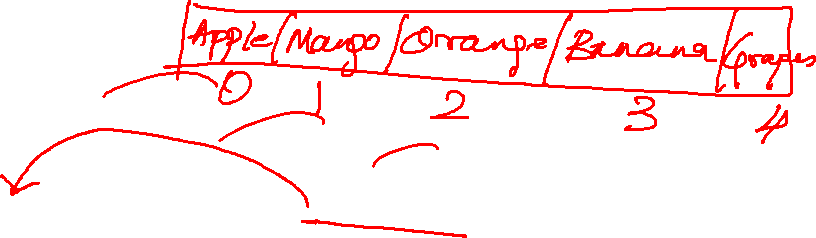 Apple Mango Orange Banana Grapes
0 1 2 3 4